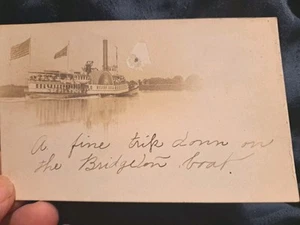 A fine trip down on
the Bridgeton boat.